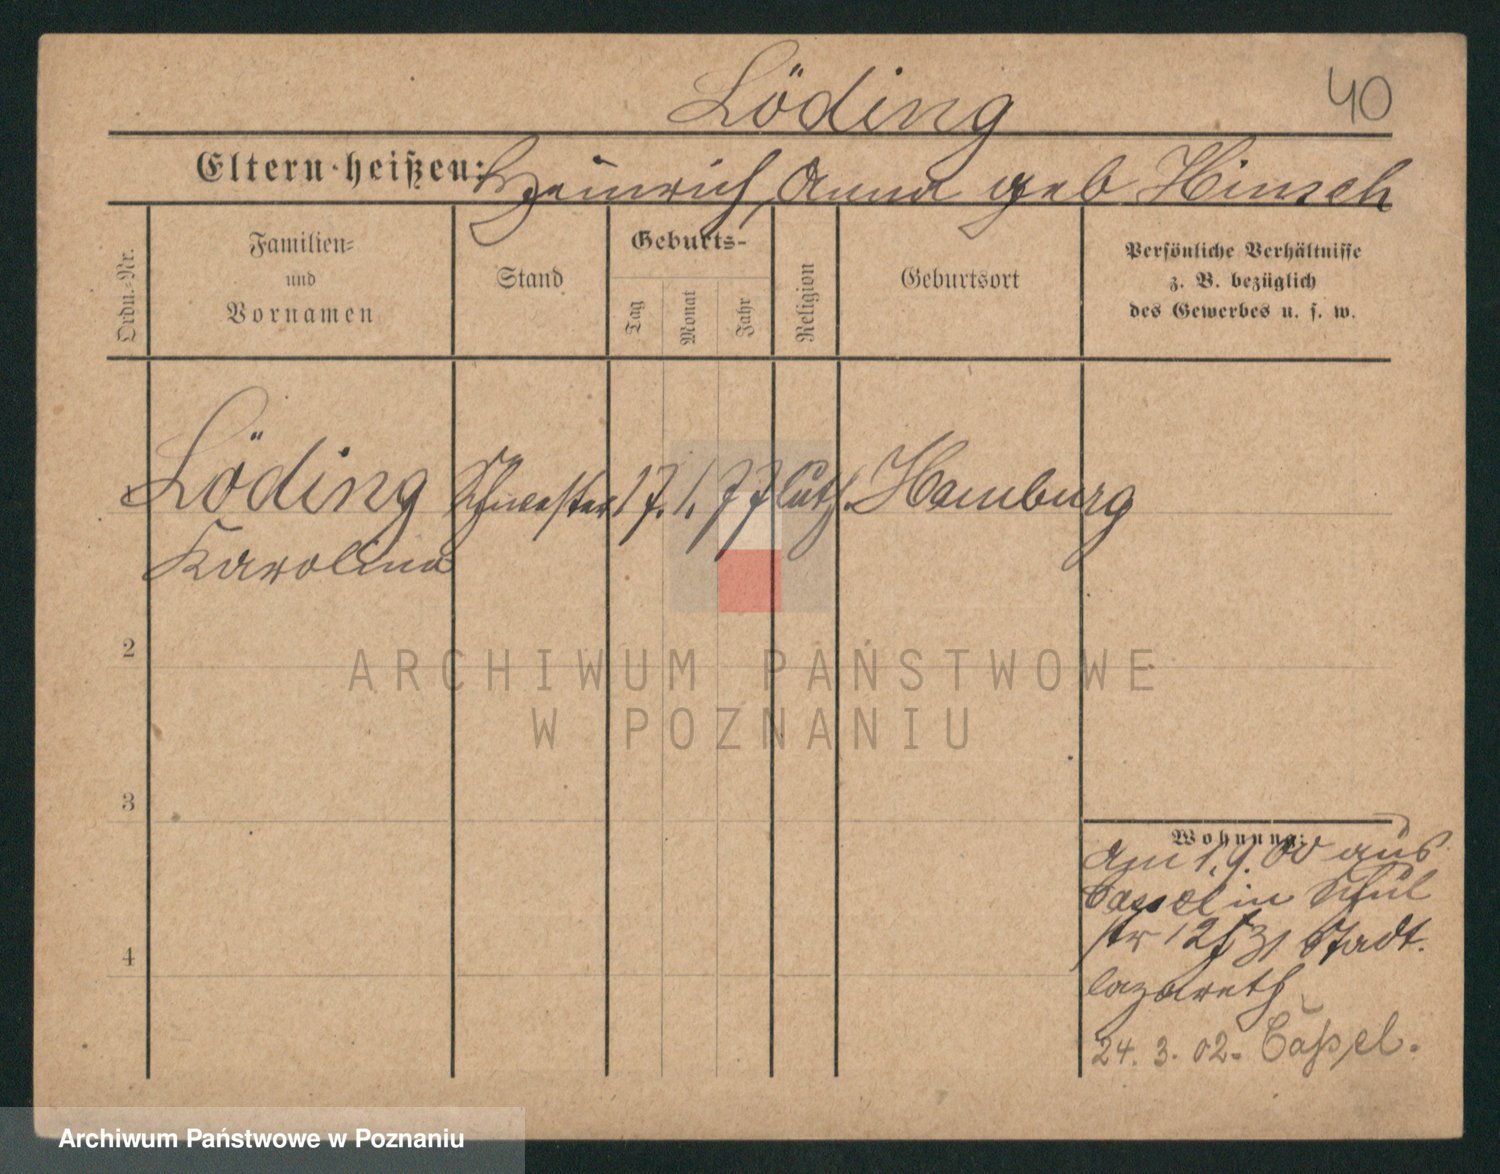 Löding
40
Eltern heißen: Heinrich, Anna geb Hinsch
Ordn.-Nr.
Familien-
und
Vornamen
Stand
Geburts-
Tag
Monat
Jahr
Religion
Geburtsort
Persönliche Verhältnisse
z. B. bezüglich
des Gewerbes u. s. w.
1 Löding Schwester 17. 1. 77 luth. Hamburg
Karolina
2
ARCHIWUM PAŃSTWOWE
W POZNANIU
3
Wohnung:
Am 1.9.00 aus
Cassel in Schul
str 12/31 Stadt.
lazareth
4
24. 3. 02. Caßel.
Archiwum Państwowe w Poznaniu